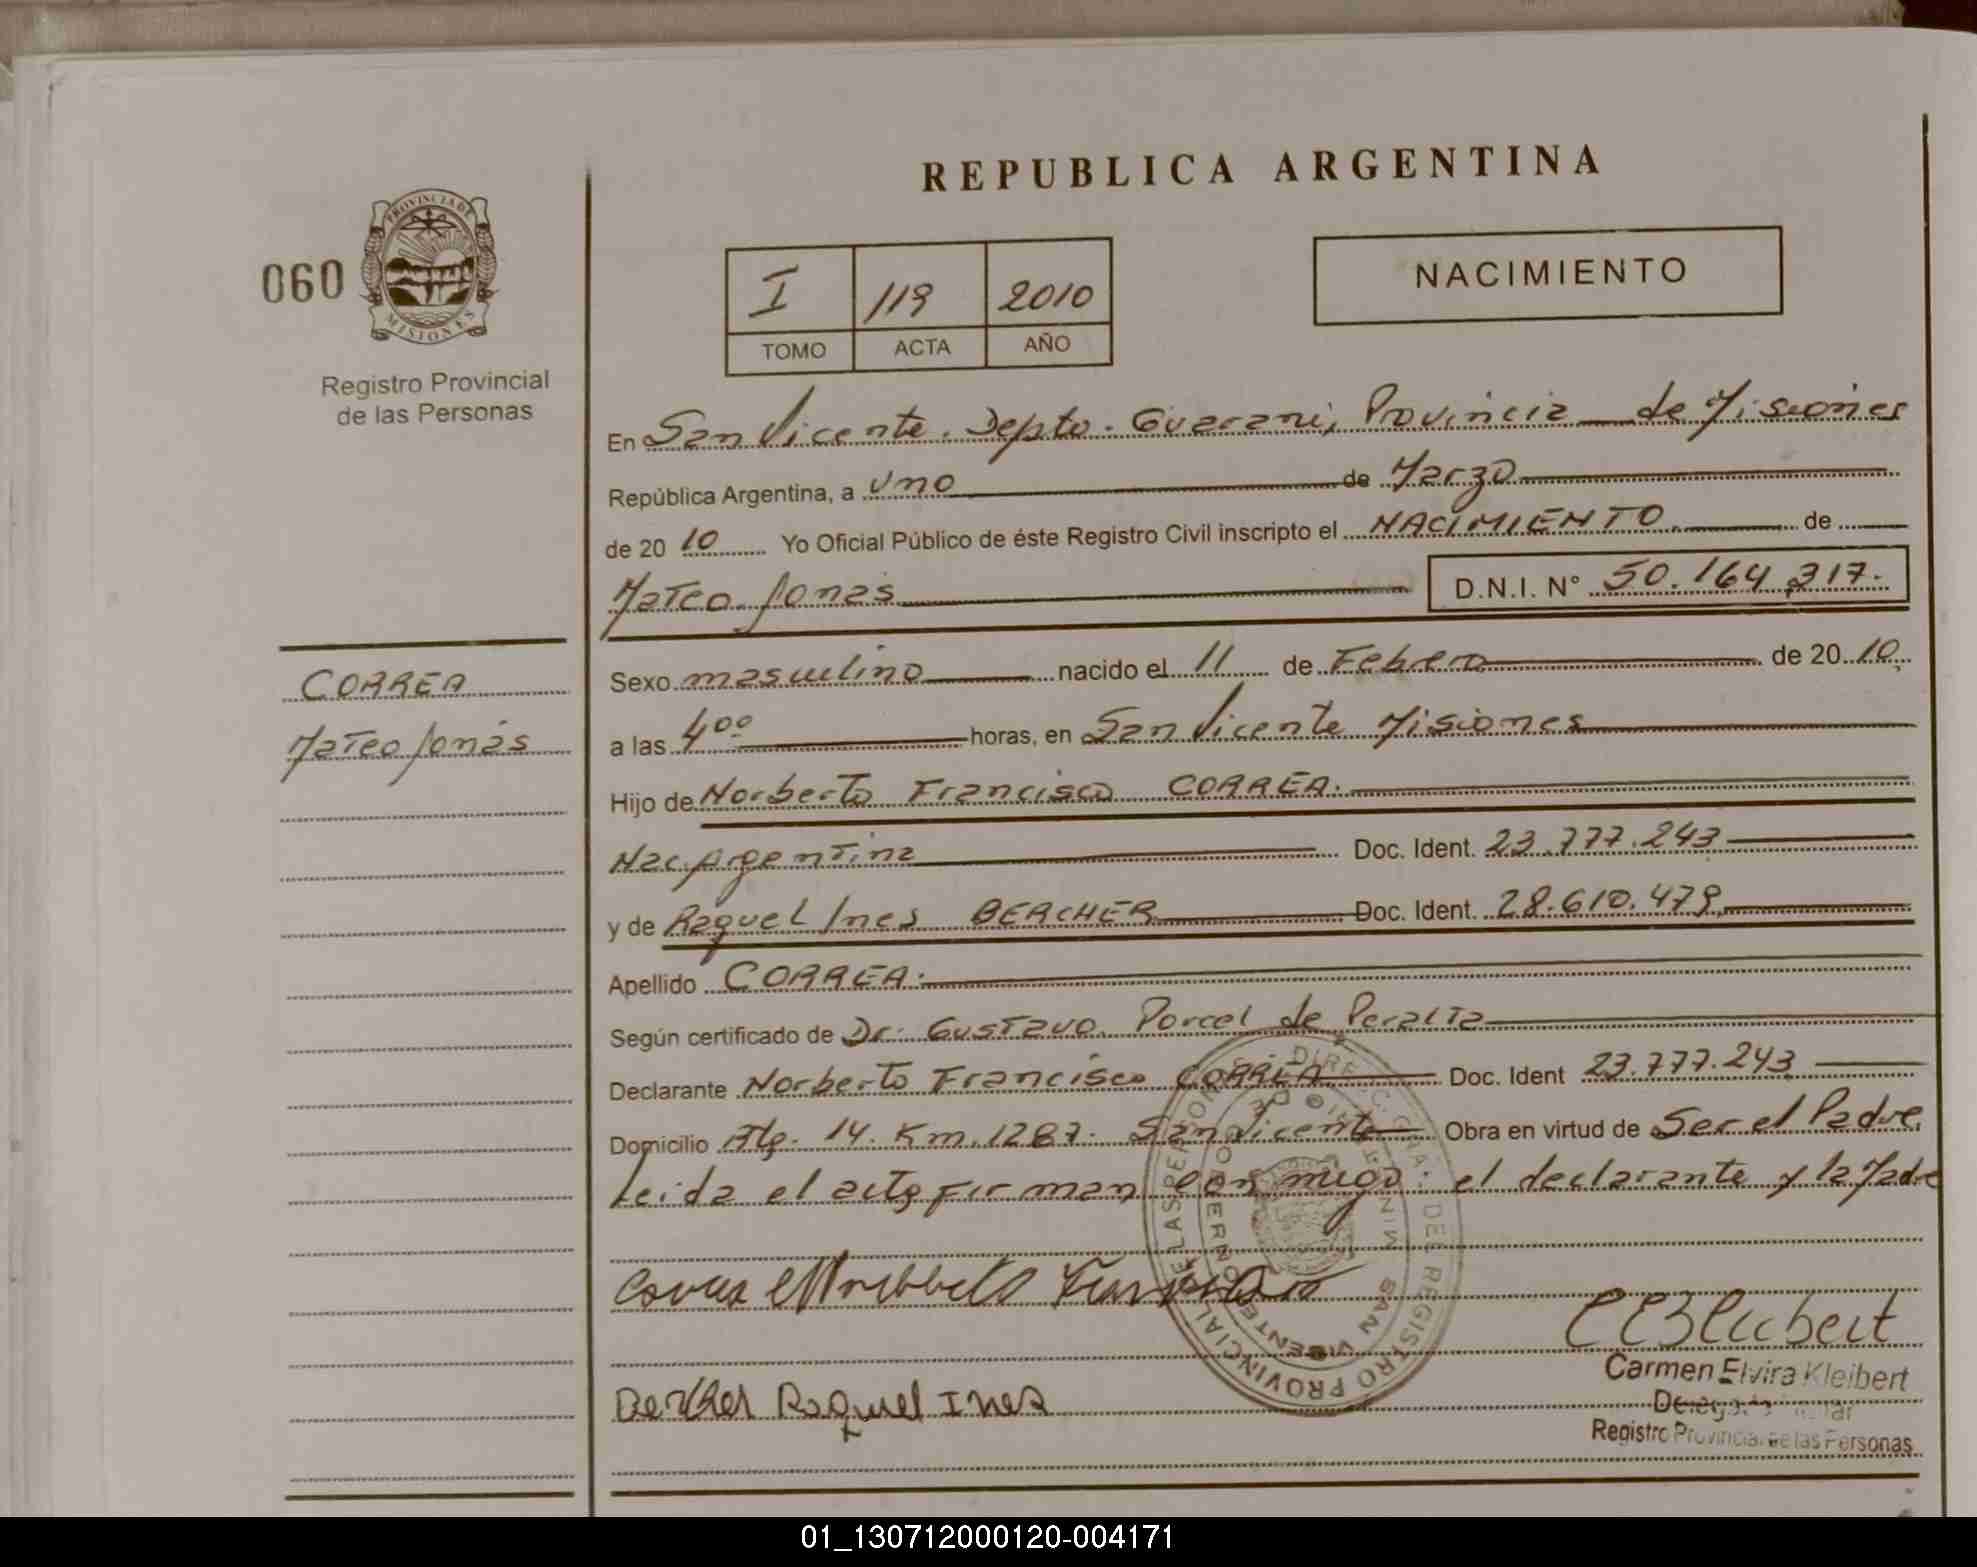 REPUBLICA ARGENTINA
060
PROVINCIA DE
MISIONES
Registro Provincial
de las Personas
I 119 2010
TOMO ACTA AÑO
NACIMIENTO
En San Vicente. Depto. Guarani, Provincia de Misiones
República Argentina, a uno de Marzo
de 20 10 Yo Oficial Público de éste Registro Civil inscripto el NACIMIENTO de
Mateo Jonas D.N.I. N° 50.164.317.
CORREA
Mateo Jonás
Sexo masculino nacido el 11 de Febrero de 20 10
a las 4 00 horas, en San Vicente Misiones
Hijo de Norberto Francisco CORREA.
Nac. Argentina Doc. Ident. 23.777.243
y de Raquel Ines BERCHER Doc. Ident. 28.610.479
Apellido CORREA.
Según certificado de Dr. Gustavo Porcel de Peralta
Declarante Norberto Francisco CORREA Doc. Ident 23.777.243
Domicilio 14. Km. 1287. San Vicente Obra en virtud de Ser el Padre,
Leida el acta firman conmigo: el declarante y la Madre
Correa Norberto
Bercher Raquel Ines
Carmen Elvira Kleibert
Registro Provincial de las Personas
DIREC. GRAL. DEL REGISTRO PROVINCIAL DE LAS PERSONAS
SAN VICENTE
01_130712000120-004171